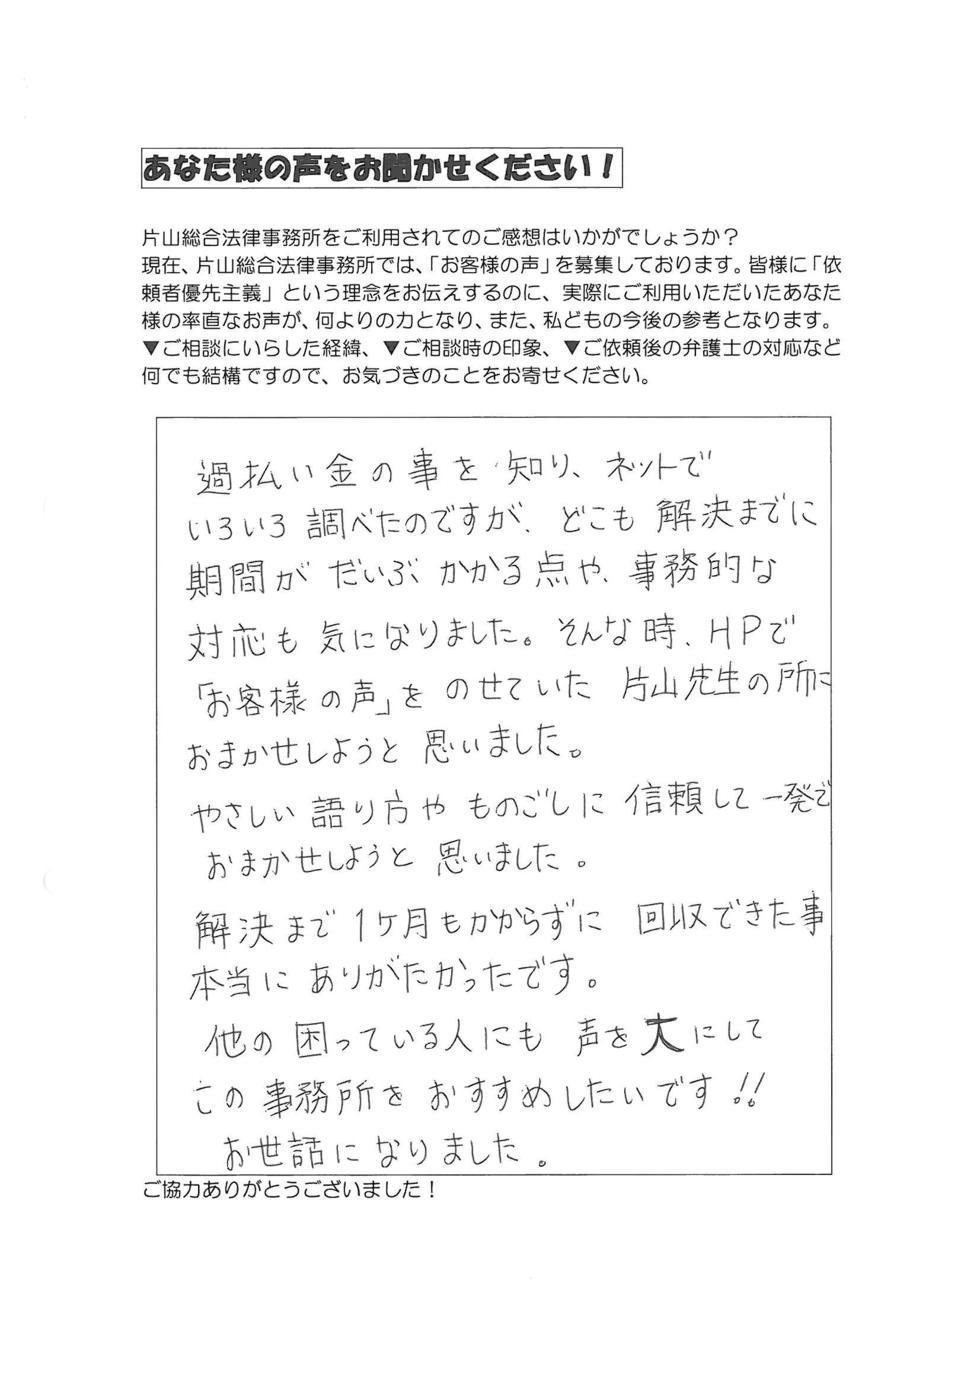 あなた様の声をお聞かせください！
片山総合法律事務所をご利用されてのご感想はいかがでしょうか？
現在、片山総合法律事務所では、「お客様の声」を募集しております。皆様に「依
頼者優先主義」という理念をお伝えするのに、実際にご利用いただいたあなた
様の率直なお声が、何よりの力となり、また、私どもの今後の参考となります。
▼ご相談にいらした経緯、▼ご相談時の印象、▼ご依頼後の弁護士の対応など
何でも結構ですので、お気づきのことをお寄せください。
過払い金の事を知り、ネットで
いろいろ調べたのですが、どこも解決までに
期間がだいぶかかる点や、事務的な
対応も気になりました。そんな時、HPで
「お客様の声」をのせていた片山先生の所に
おまかせしようと思いました。
やさしい語り方やものごしに信頼して一発で
おまかせしようと思いました。
解決まで1ケ月もかからずに回収できた事
本当にありがたかったです。
他の困っている人にも声を大にして
この事務所をおすすめしたいです!!
お世話になりました。
ご協力ありがとうございました！